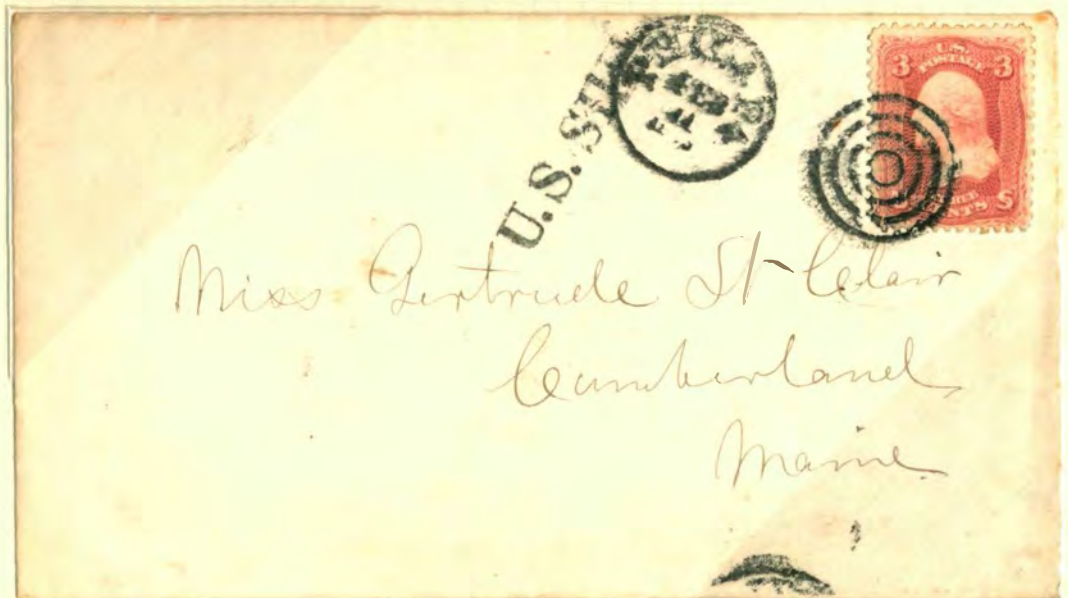 U.S. SHIP
3 U.S. POSTAGE 3
THREE CENTS
Miss Gertrude St Clair
Cumberland
Maine